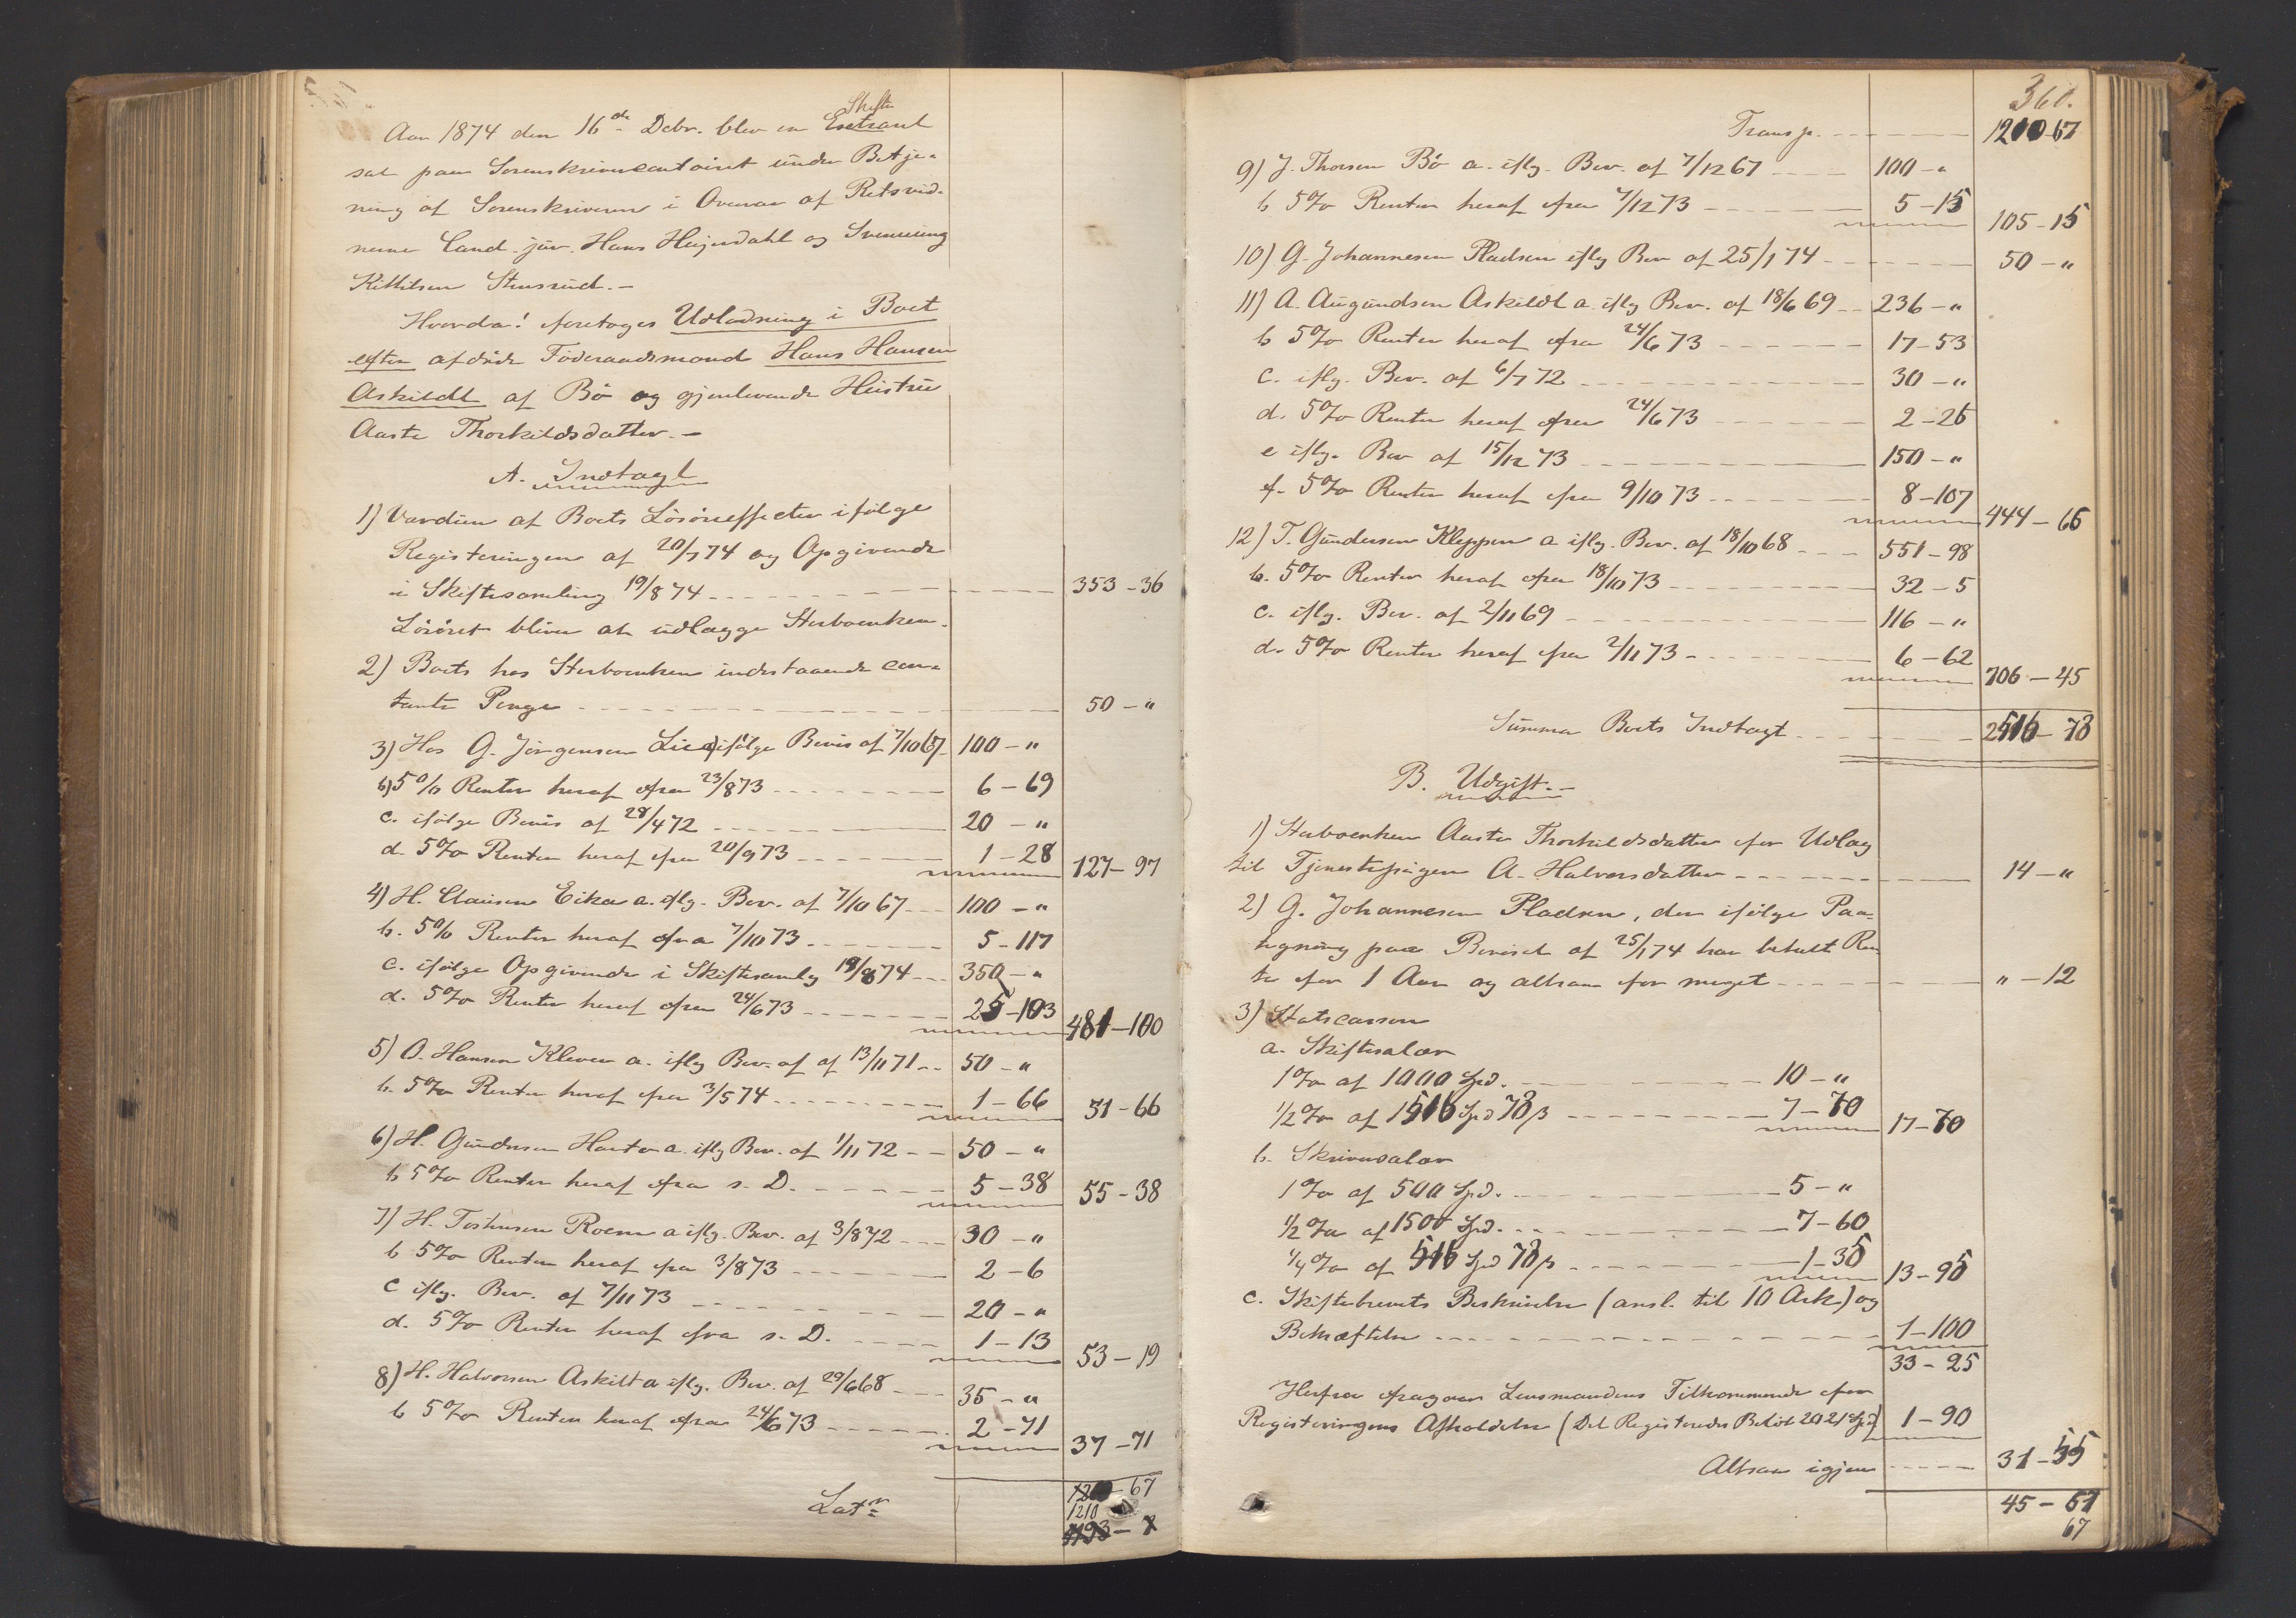 Aar 1874 den 16de Debr. blev en Extraret
Skifte
sat paa Sorenskrivercontoiret under Betje-
ning af Sorenskriveren i Overvær af Retsvid-
nerne Cand. jur. Hans Heyerdahl og Svennung
Kittilsen Stensrud.-
Hvorda! foretoges Udlodning i Boet
efter afdøde Føderaadsmand Hans Hansen
Askildt af Bø og gjenlevende Hustru
Aaste Thorkildsdatter.-
A. Indtægt
1) Værdien af Boets Løsøreeffecter ifølge
Registeringen af 20/7 74 og Opgivende
i Skiftesamling 19/8 74 353 - 36
Løsøret bliver at udlægge Stervboenken.
2) Boets hos Stervboenken indestaaende con-
tante Penge 50 - "
3) Hos G. Jørgensen Lie a) ifølge Bevis af 7/10 67 100 - "
b) 5 % Renter heraf fra 23/8 73 6 - 69
c. ifølge Bevis af 28/4 72 20 - "
d. 5 % Renter heraf fra 20/9 73 1 - 28 127 - 97
4) H. Clausen Eika a. iflg. Bev. af 7/10 67 100 - "
b. 5 % Renter heraf fra 7/10 73 5 - 117
c. ifølge Opgivende i Skiftesamlg 19/8 74 350 - "
d. 5 % Renter heraf fra 24/6 73 25 - 103 481 - 100
5) O. Hansen Kleven a. iflg Bev. af af 13/11 71 50 - "
b. 5 % Renter heraf fra 3/5 74 1 - 66 51 - 66
6) H. Gundersen Harto a. iflg Bev. af 1/11 72 50 - "
b 5 % Renter heraf fra s. D. 5 - 38 55 - 38
7) H. Tostensen Roem a iflg. Bev. af 3/8 72 30 - "
b 5 % Renter heraf fra 3/8 73 2 - 6
c iflg. Bev. af 7/11 73 20 - "
d. 5 % Renter heraf fra s. D. 1 - 13 53 - 19
8) H. Halvorsen Askilt a iflg. Bev. af 29/6 68 35 - "
b 5 % Renter heraf fra 24/6 73 2 - 71 37 - 71
Lats 1210 - 67
1210
360.
Transp. 1210 - 67
9) J. Thorsen Bø a. iflg. Bev. af 7/12 67 100 - "
b 5 % Renter heraf fra 7/12 73 5 - 15 105 - 15
10) G. Johannesen Pladsen iflg Bev af 25/1 74 50 - "
11) A. Augundsen Askildt a. iflg Bev. af 18/6 69 236 - "
b 5 % Renter heraf fra 24/6 73 17 - 53
c. iflg. Bev. af 6/7 72 30 - "
d. 5 % Renter heraf fra 24/6 73 2 - 26
e iflg. Bev af 15/12 73 150 - "
f. 5 % Renter heraf fra 9/10 73 8 - 107 444 - 66
12) T. Gundersen Kleppen a iflg. Bev. af 18/10 68 551 - 98
b. 5 % Renter heraf fra 18/10 73 32 - 5
c. iflg. Bev. af 2/11 69 116 - "
d. 5 % Renter heraf fra 2/11 73 6 - 62 706 - 45
Summa Boets Indtægt 2516 - 73
B. Udgift.-
1) Stervboenken Aaste Thorkildsdatter for Udlæg
til Tjenestepigen A. Halvorsdatter 14 - "
2) G. Johannesen Pladsen, der ifølge Paa-
tegning paa Beviset af 25/1 74 har betalt Ren-
te for 1 Aar og altsaa for meget " - 12
3) Statscassen
a. Skiftesalær
1 % af 1000 Spd. 10 - "
1/2 % af 1516 Spd 73 ß 7 - 70 17 - 70
b. Skriversalær
1 % af 500 Spd. 5 - "
1/2 % af 1500 Spd. 7 - 60
1/4 % af 516 Spd 73 ß 1 - 35 13 - 95
c. Skiftebrevets Beskrivelse (ansl. til 10 Ark) og
Bekræftelse 1 - 100
33 - 25
Herfra fragaar Lensmandens Tilkommende for
Registeringens Afholdelse (Det Registerede Beløb 2021 Spd) 1 - 90
Altsaa igjen 31 - 55
45 - 67
67